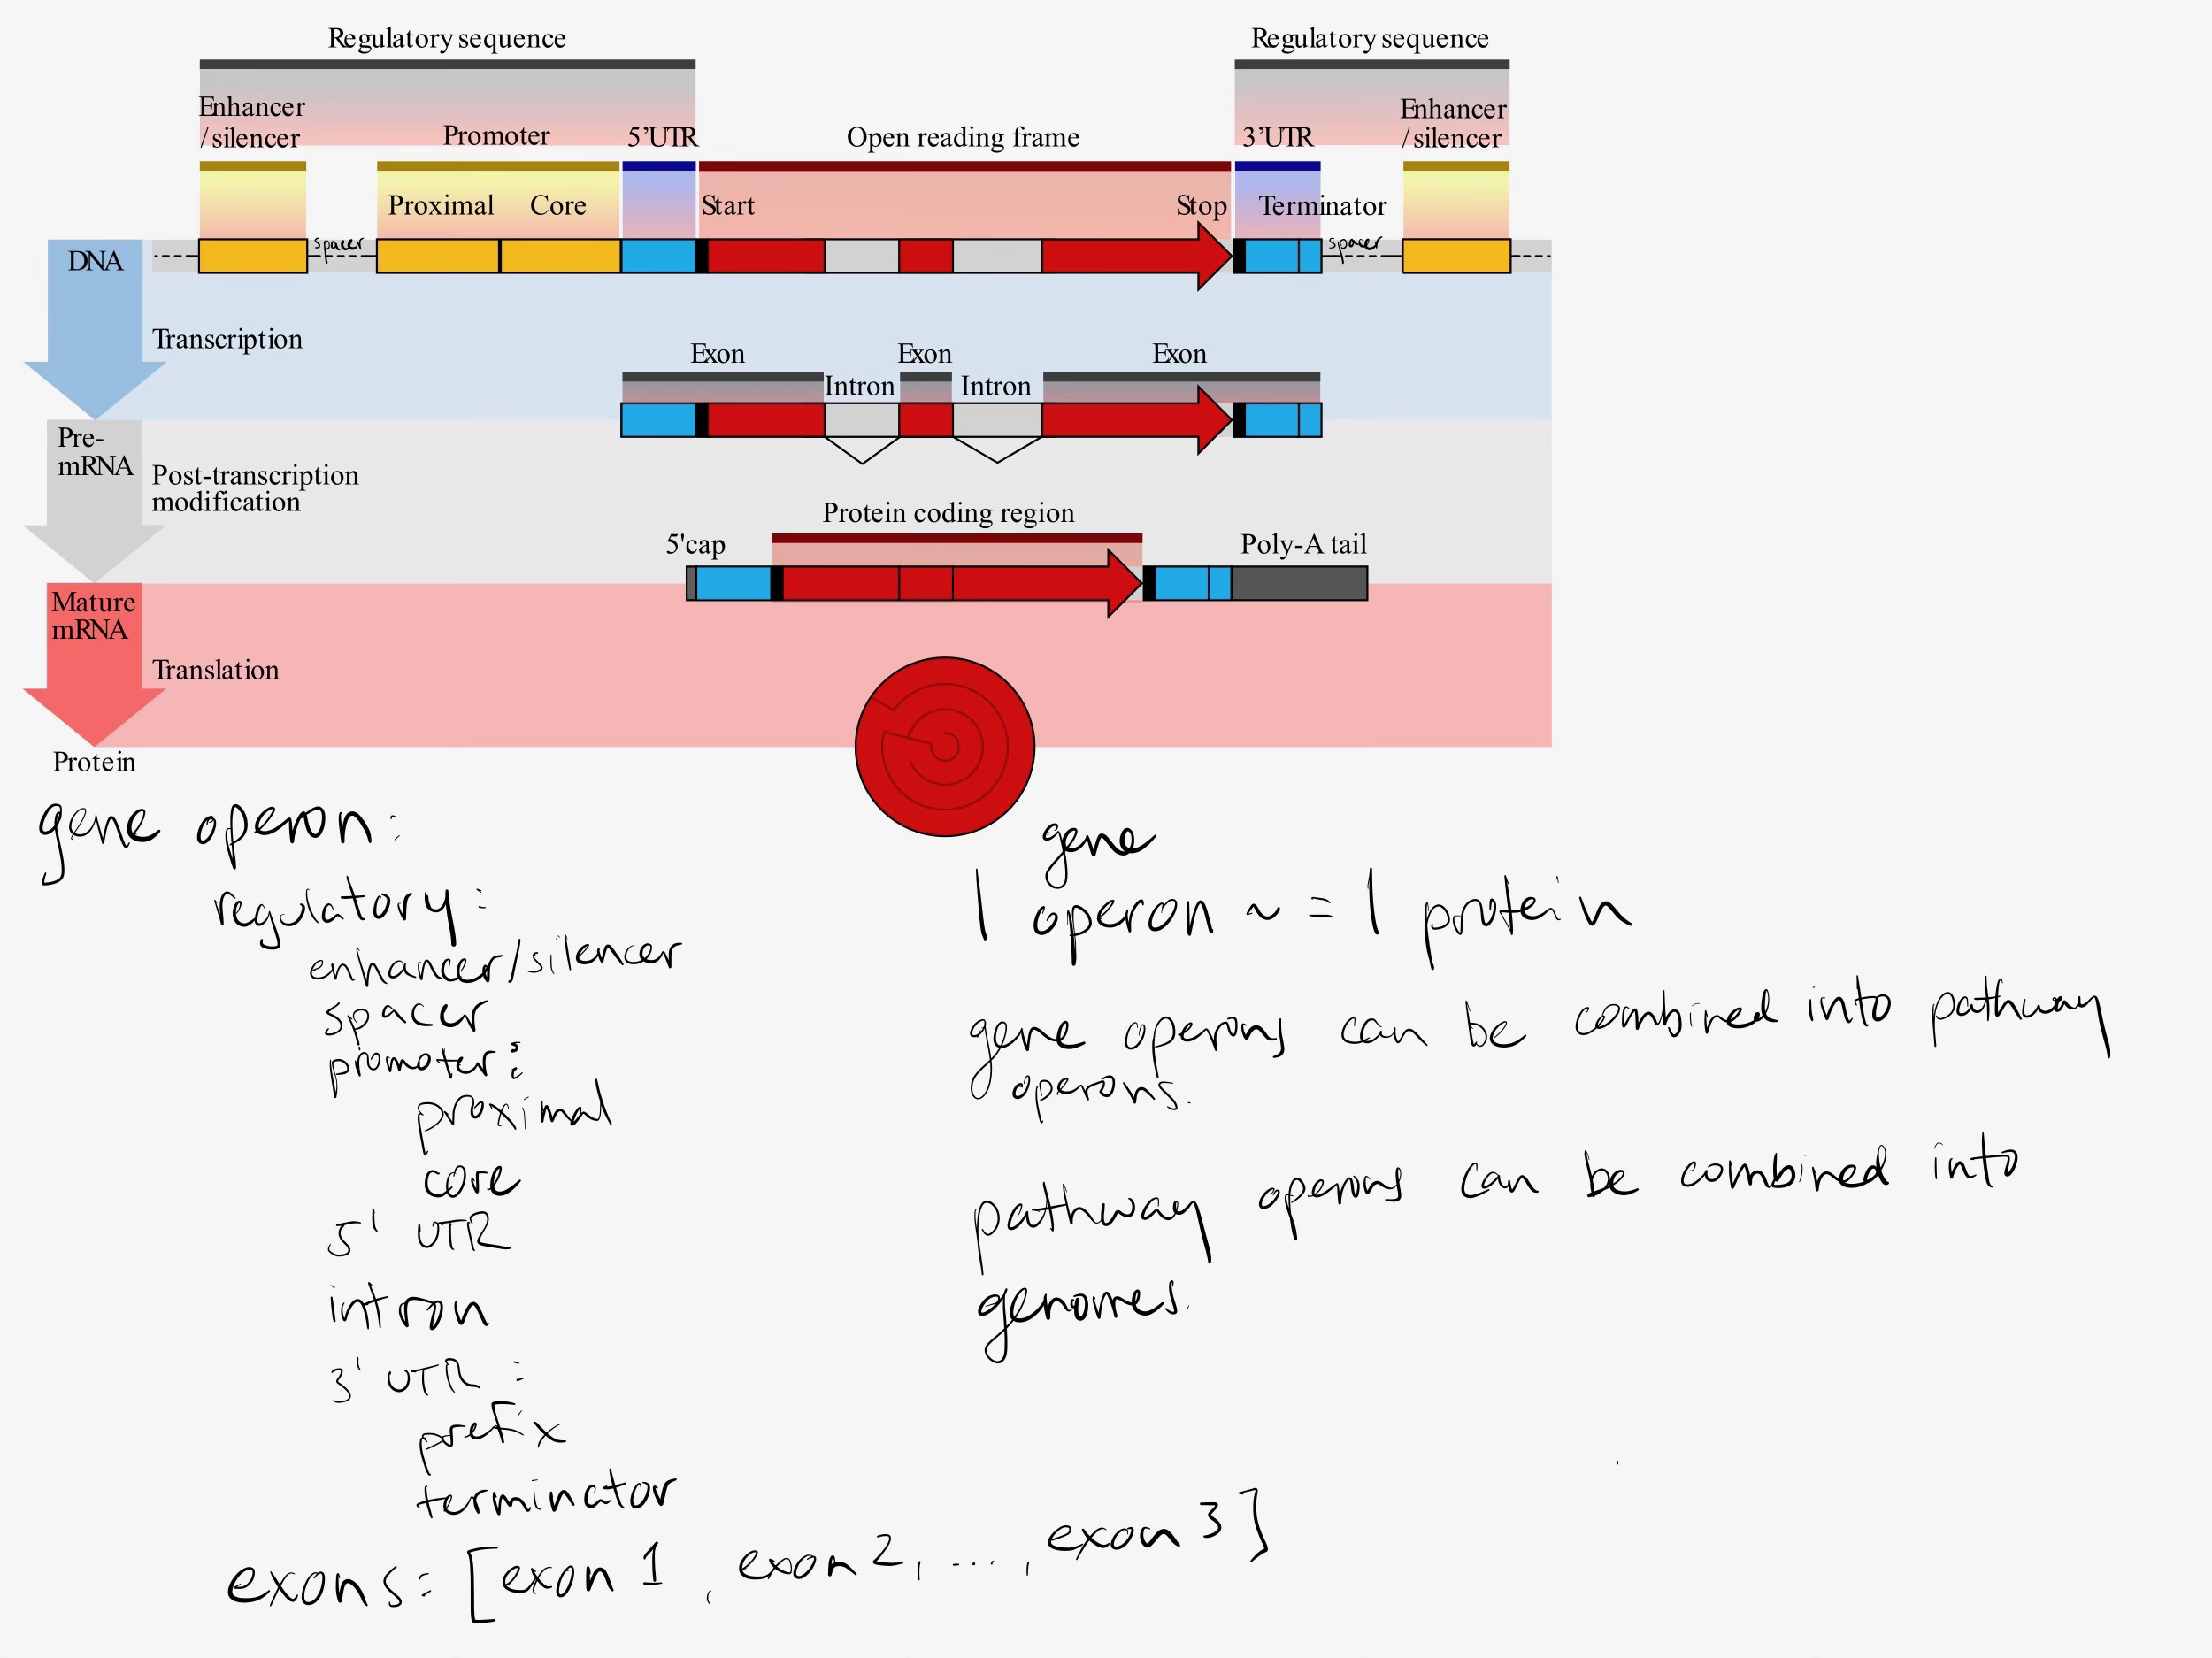 Regulatory sequence
Regulatory sequence
Enhancer
/silencer
Promoter
5'UTR
Open reading frame
3'UTR
Enhancer
/silencer
Proximal
Core
Start
Stop
Terminator
DNA
spacer
spacer
Transcription
Exon
Exon
Exon
Intron
Intron
Pre-
mRNA
Post-transcription
modification
Protein coding region
5'cap
Poly-A tail
Mature
mRNA
Translation
Protein
gene operon:
regulatory:
enhancer/silencer
spacer
promoter:
proximal
core
5' UTR
intron
3' UTR:
prefix
terminator
exons: [exon 1, exon 2, ..., exon 3]
gene
1 operon ~ = 1 protein
gene operons can be combined into pathway
operons.
pathway operons can be combined into
genomes.